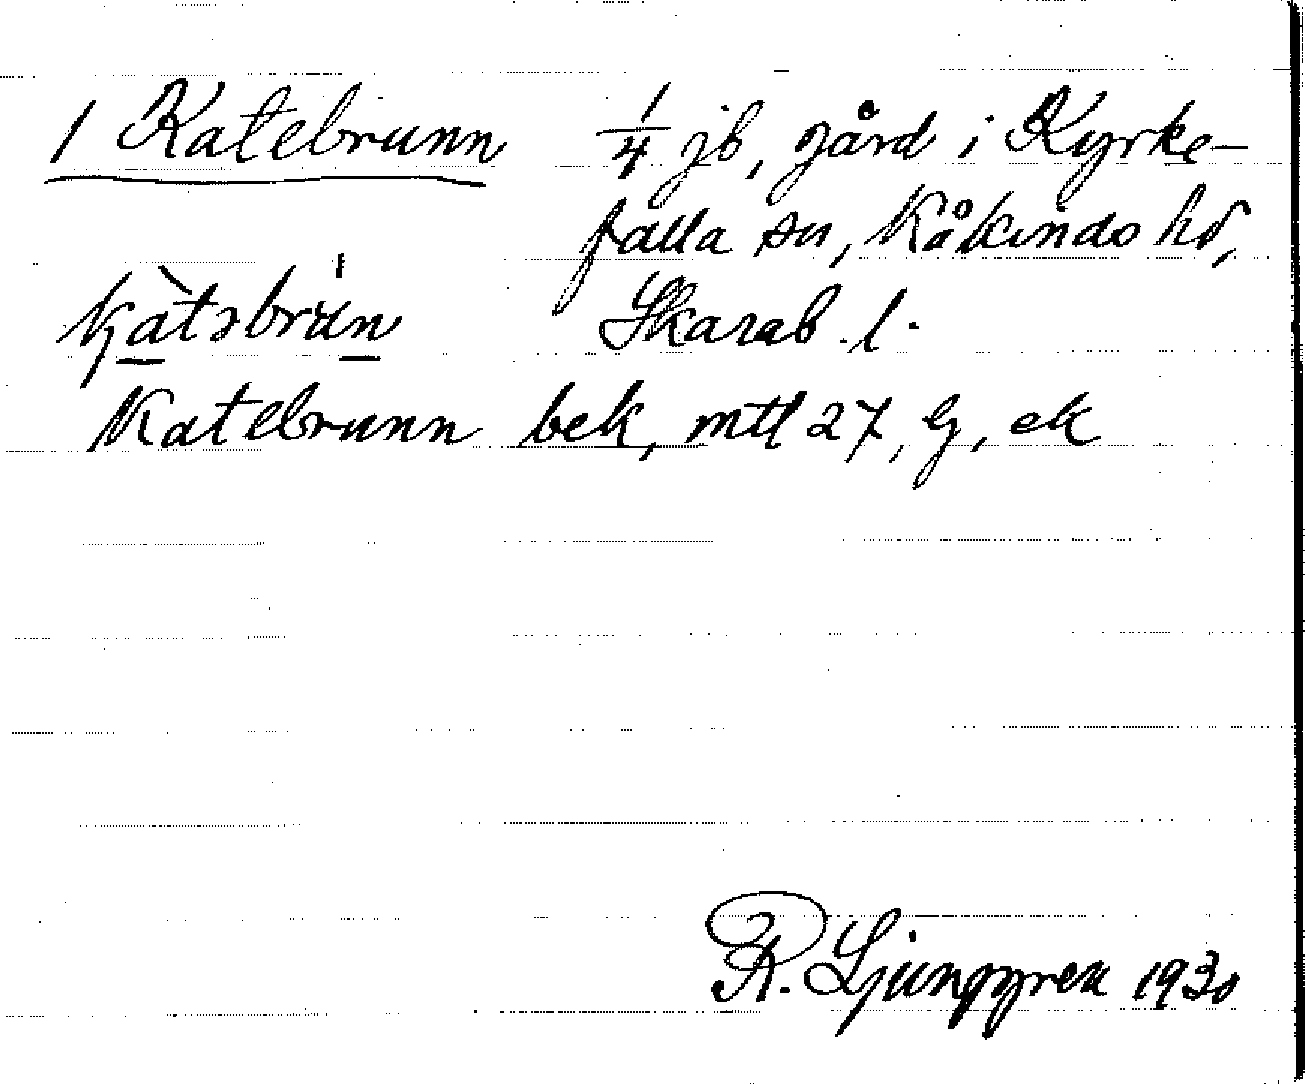 1 Katebrunn 1/4 jb, gård i Kyrke-
falla sn, Kåkinds hd,
Skarab. l.
Katebrunn bek, mtl 27, Gj, ek
R. Ljunggren 1930